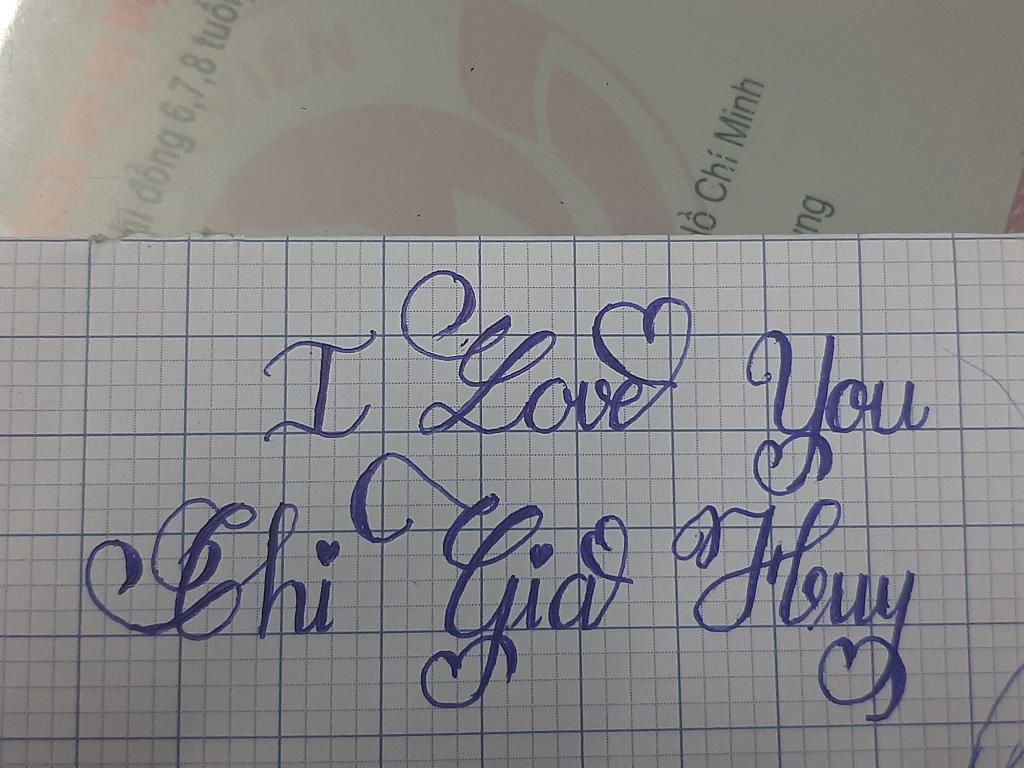 6,7,8 tuổi
VIÊN
hi đồng
Hồ Chí Minh
I Love You
Chi Gia Huy